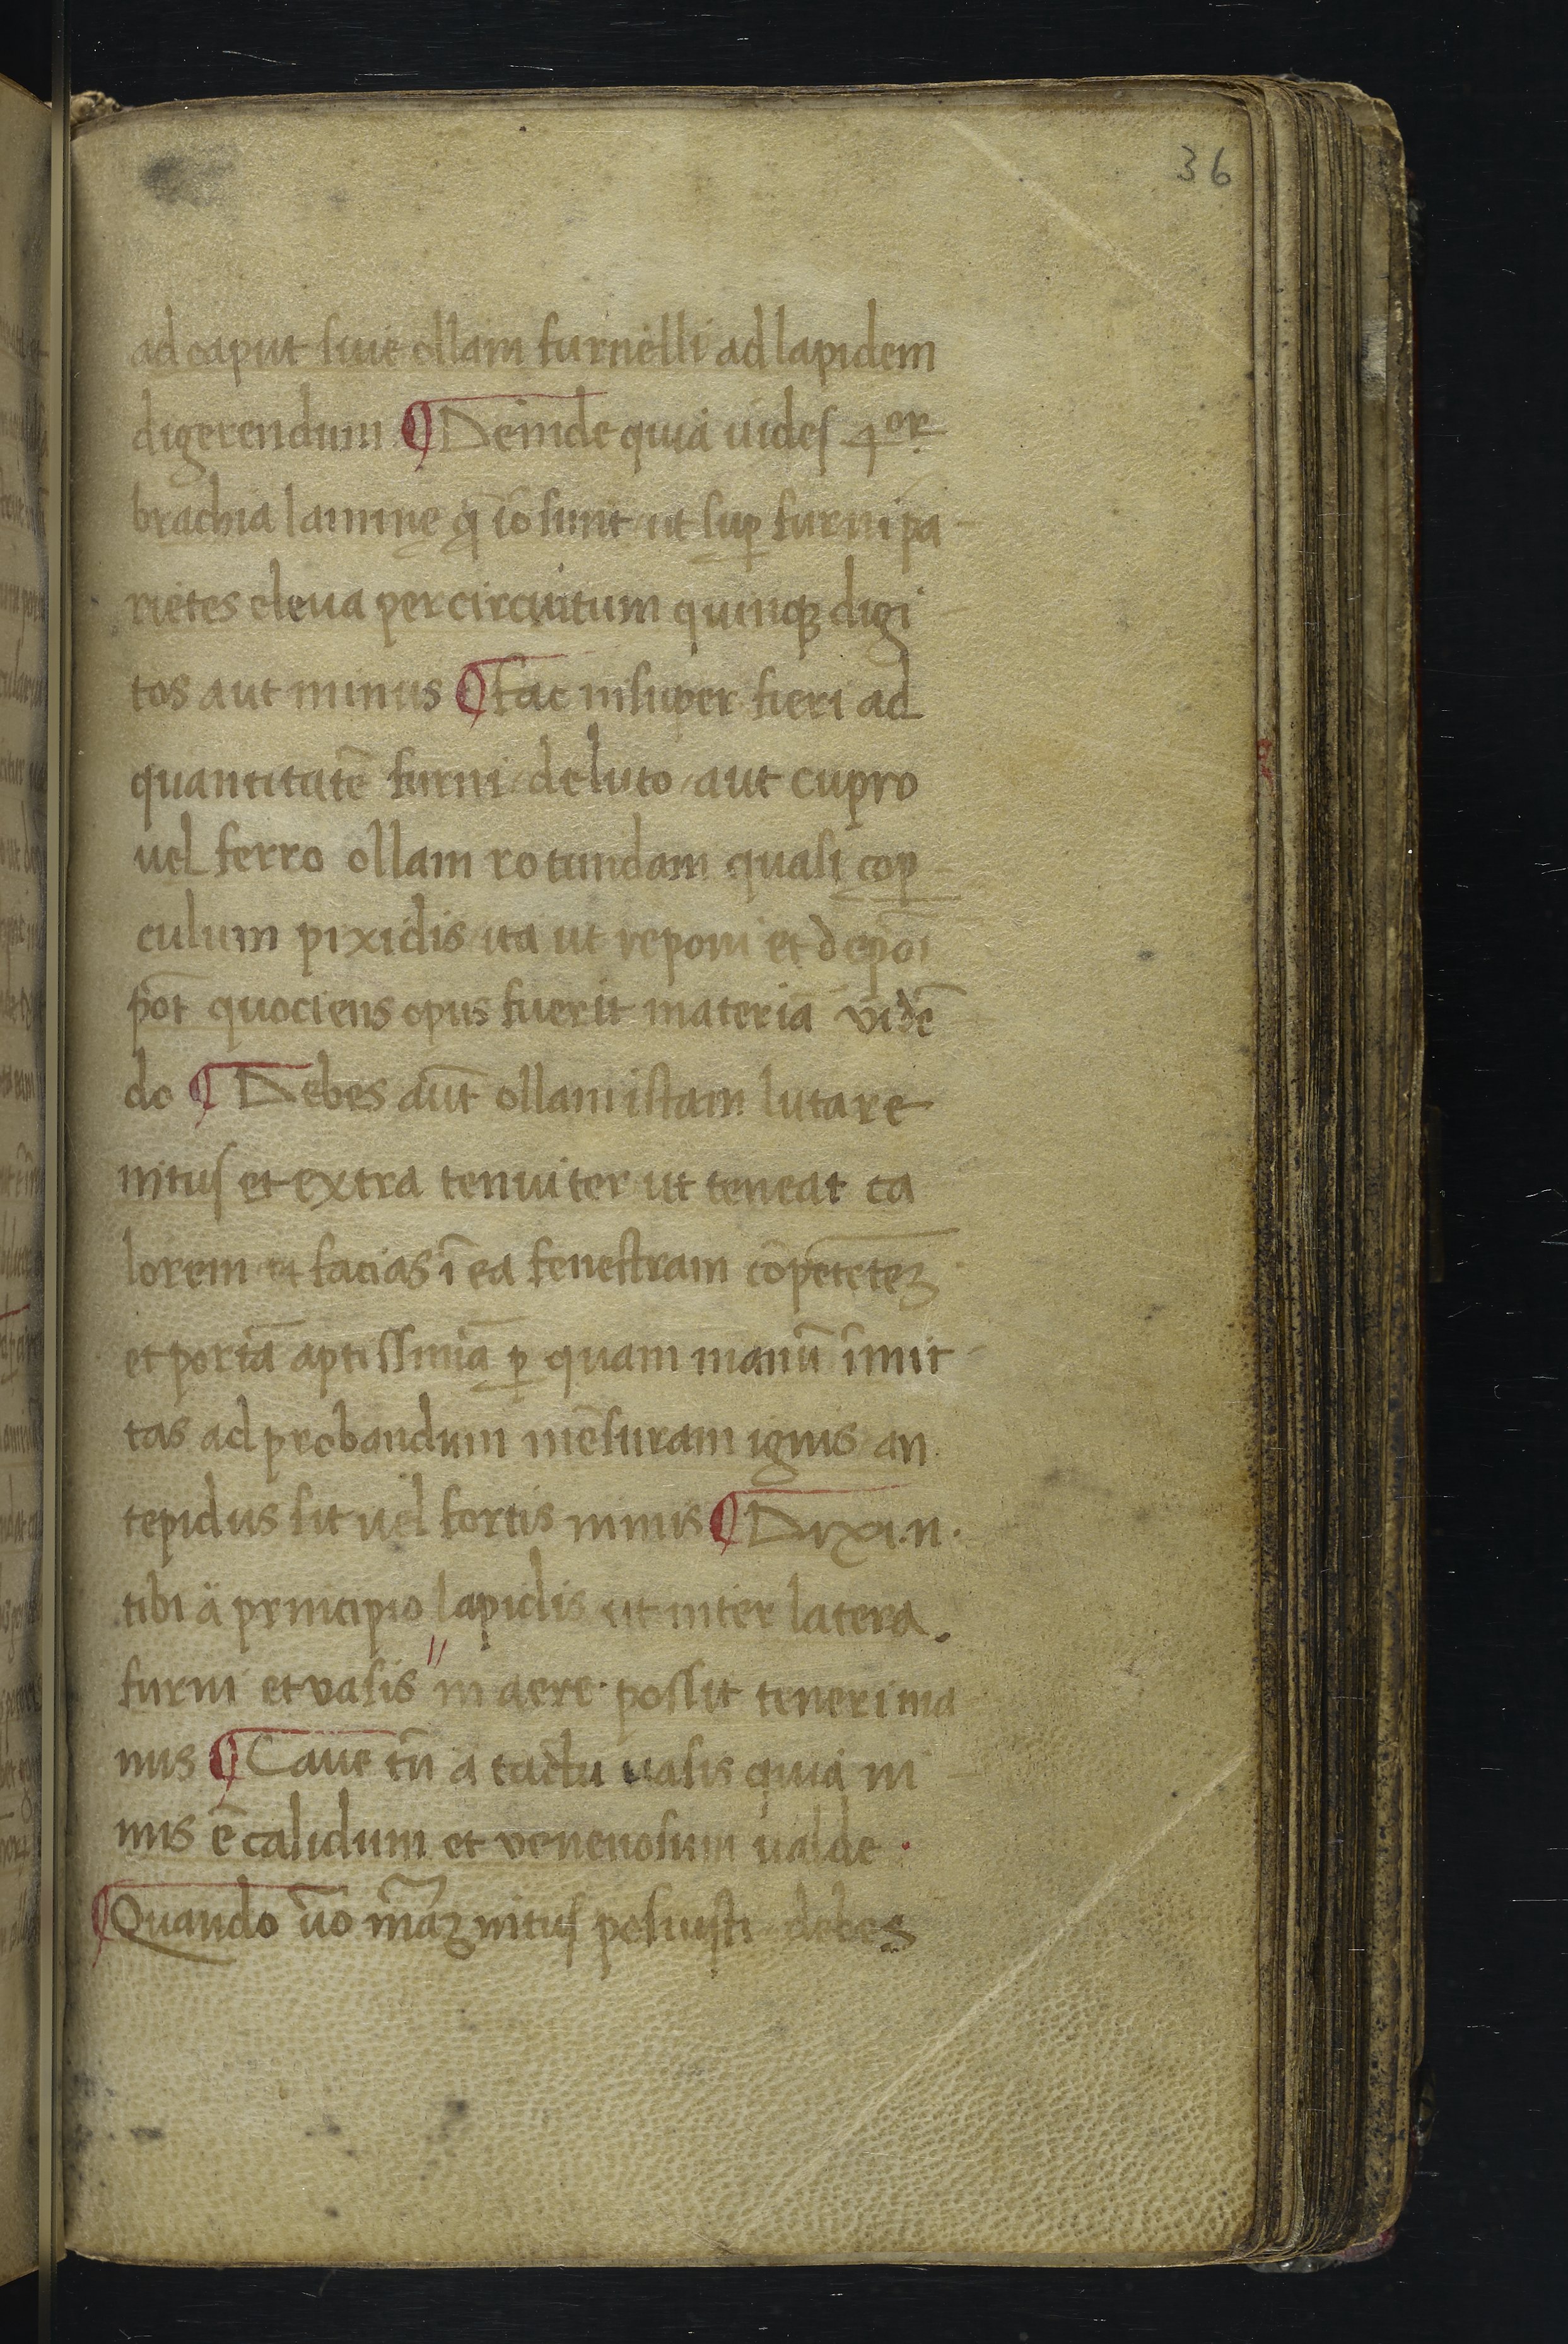 36
ad caput siue ollam furnelli ad lapidem
digerendum ¶ Deinde quia uides 4or
brachia laminę q̄ īo sunt ut sup̱ furni pa-
rietes eleua per circuitum quinqꝫ digi-
tos aut minus ¶ Fac insuper fieri ad
quantitatē furni de luto aut cupro
uel ferro ollam rotundam quasi cop̱-
culum pixidis ita ut reponi et depōi
pōt quociens opus fuerit materiā vidē-
do ¶ Debes aūt ollam istam lutare
intus et extra tenuiter ut teneat ca
lorem et facias ī ea fenestram cōpetētēꝫ
et portā aptissimā p̱ quam manū īmit-
tas ad probandum mēsuram ignis an
tepidus sit uel fortis nimis ¶ Dixi .n.
tibi ä principio lapidis ut inter latera
furni et vasis " in aere possit teneri ma
nus ¶ Caue tn̄ a tactu uasis quia ni-
mis ē calidum et venenosum ualde .
¶ Quando ūo māꝫ intus posuisti debes